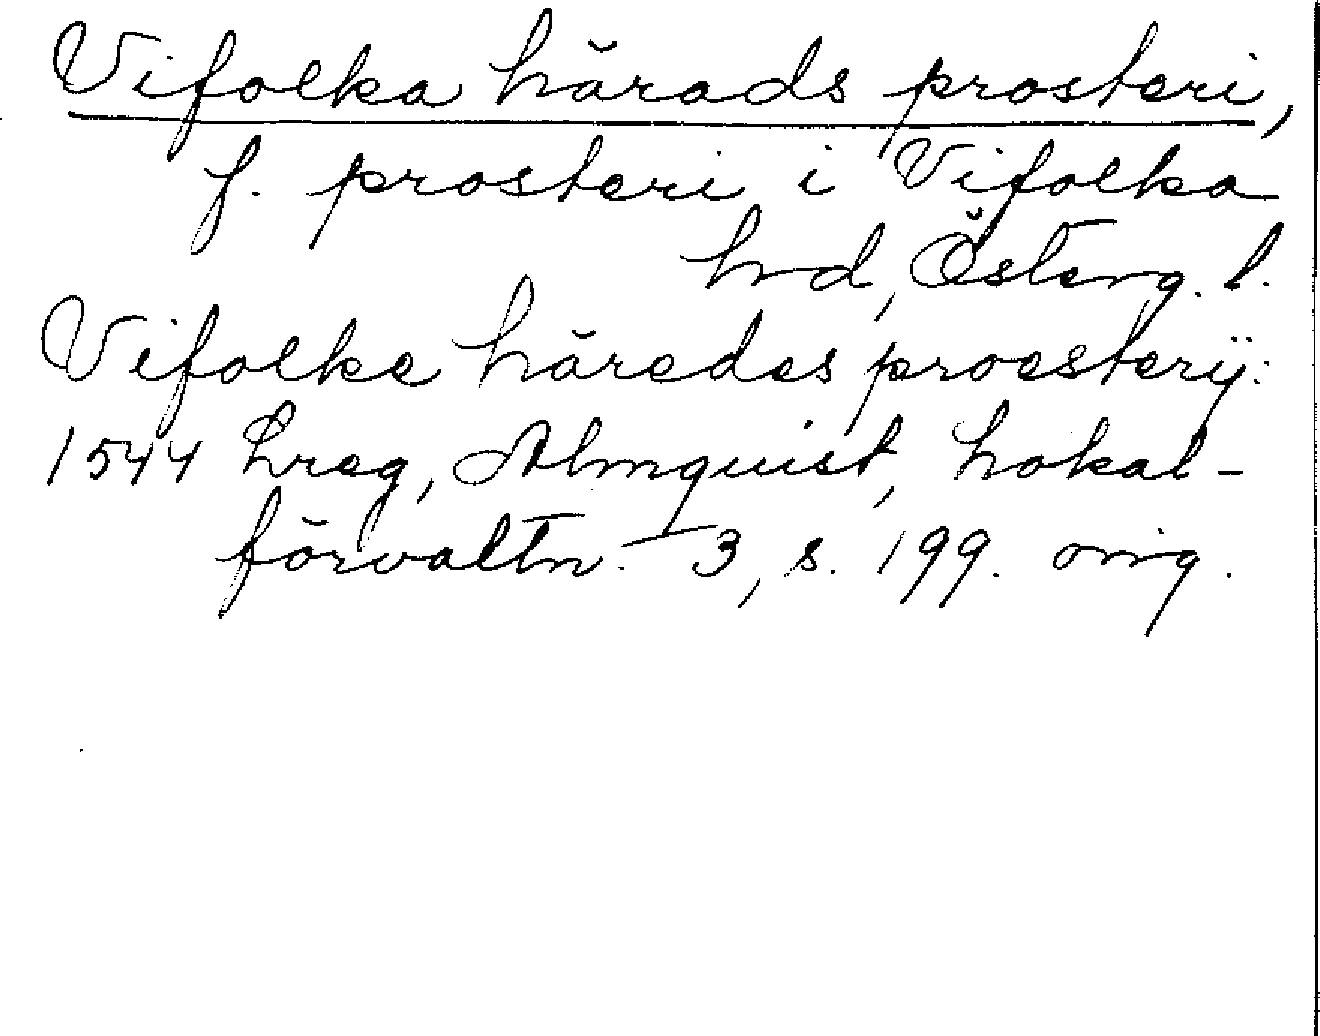 Vifolka härads prosteri,
f. prosteri i Vifolka
hrd, Österg. l.
Vifolke häredes proesterÿ:
1544 Lreg, Almquist, Lokal-
förvaltn. 3, s. 199. orig.